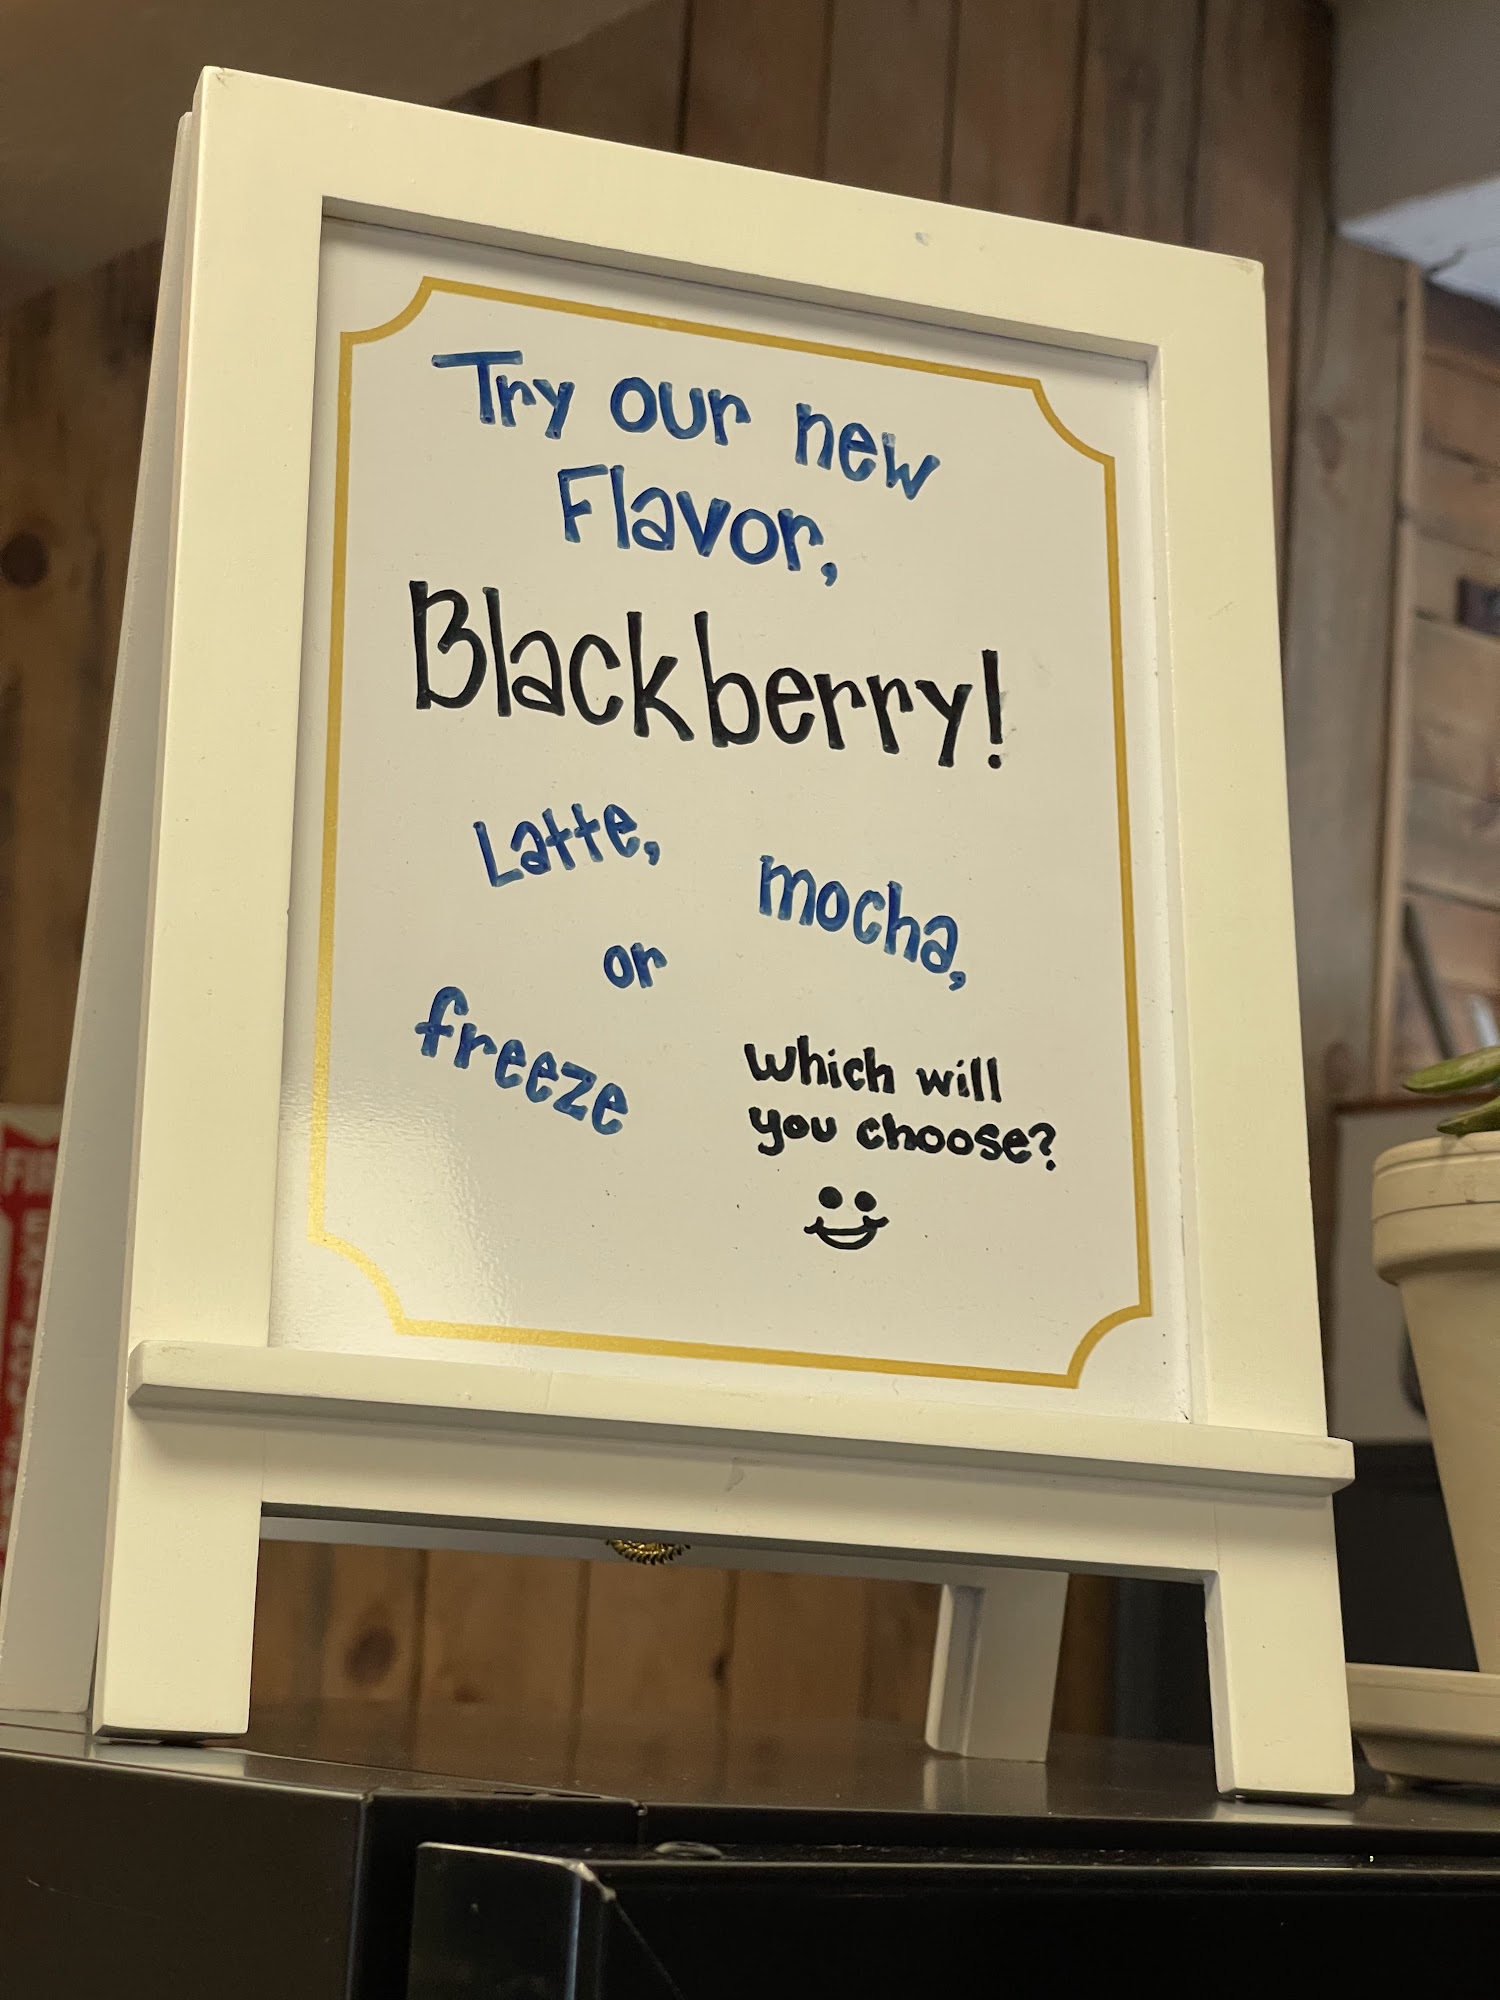 Try our new
Flavor,
Blackberry!
Latte, mocha,
or
freeze
which will
you choose?